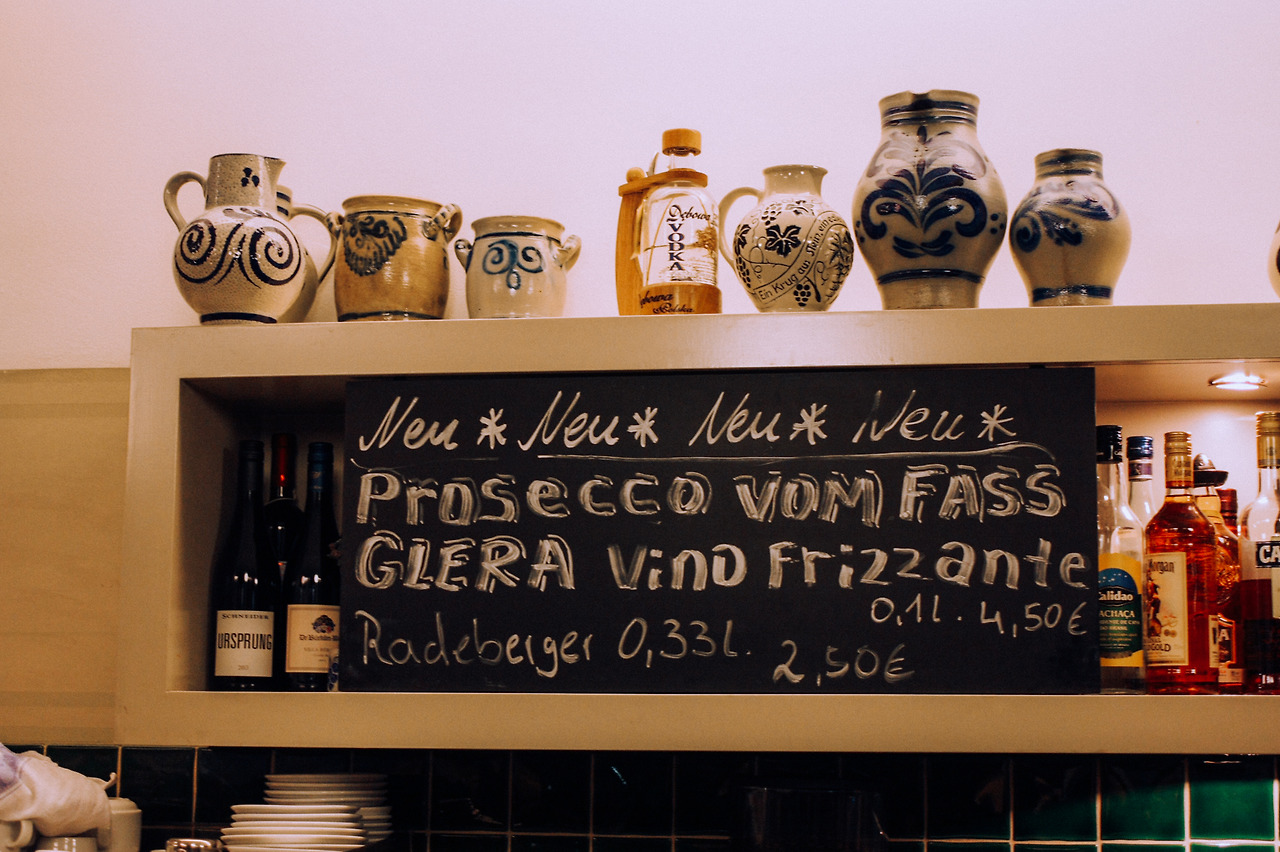 Dębowa
VODKA
Dębowa
Polska
Ein Krug aus Stein, ein
Neu * Neu * Neu * Neu *
Prosecco VOM FASS
GLERA Vino Frizzante
0,1l. 4,50€
Radeberger 0,33l. 2,50€
SCHNEIDER
URSPRUNG
Calidao
CACHAÇA
Morgan
GOLD
CA